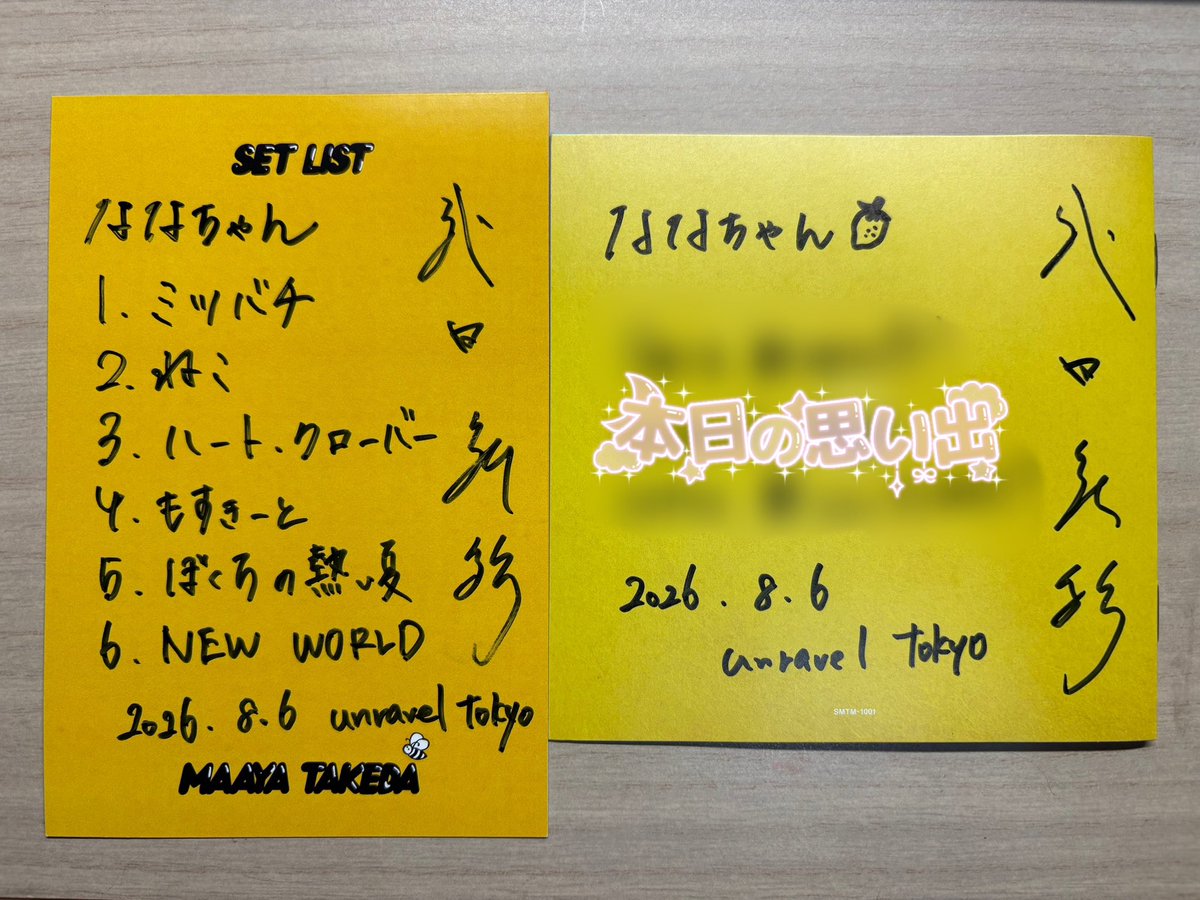 SET LIST
ななちゃん
1. ミツバチ
2. ねこ
3. ハート・クローバー
4. もすきーと
5. ぼくらの熱い夏
6. NEW WORLD
2026.8.6 unravel tokyo
MAAYA TAKEDA
武田彩
ななちゃん
本日の思い出
2026.8.6
unravel tokyo
SMTM-1001
武田彩